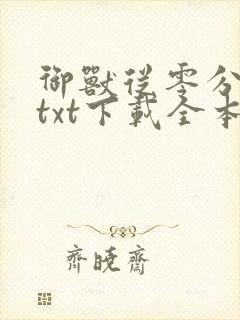 御獸從零分
txt下載全本
齊曉齋